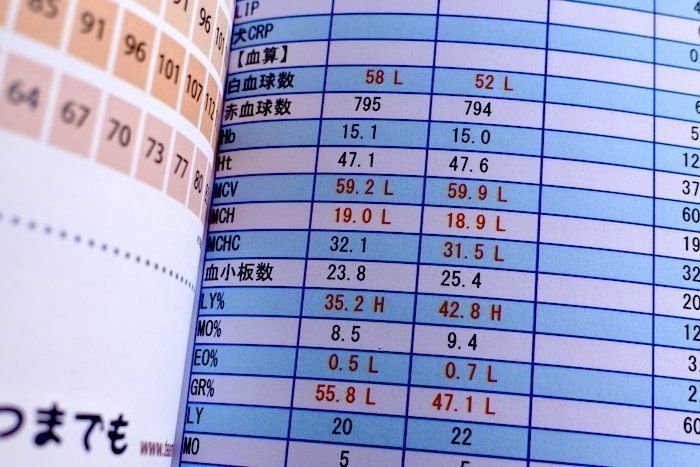 85 91 96 101 107 112
64 67 70 73 77 80
つまでも www.
LIP
犬CRP
【血算】
白血球数 58 L 52 L
赤血球数 795 794
Hb 15.1 15.0
Ht 47.1 47.6
MCV 59.2 L 59.9 L
MCH 19.0 L 18.9 L
MCHC 32.1 31.5 L
血小板数 23.8 25.4
LY% 35.2 H 42.8 H
MO% 8.5 9.4
EO% 0.5 L 0.7 L
GR% 55.8 L 47.1 L
LY 20 22
MO 5 5